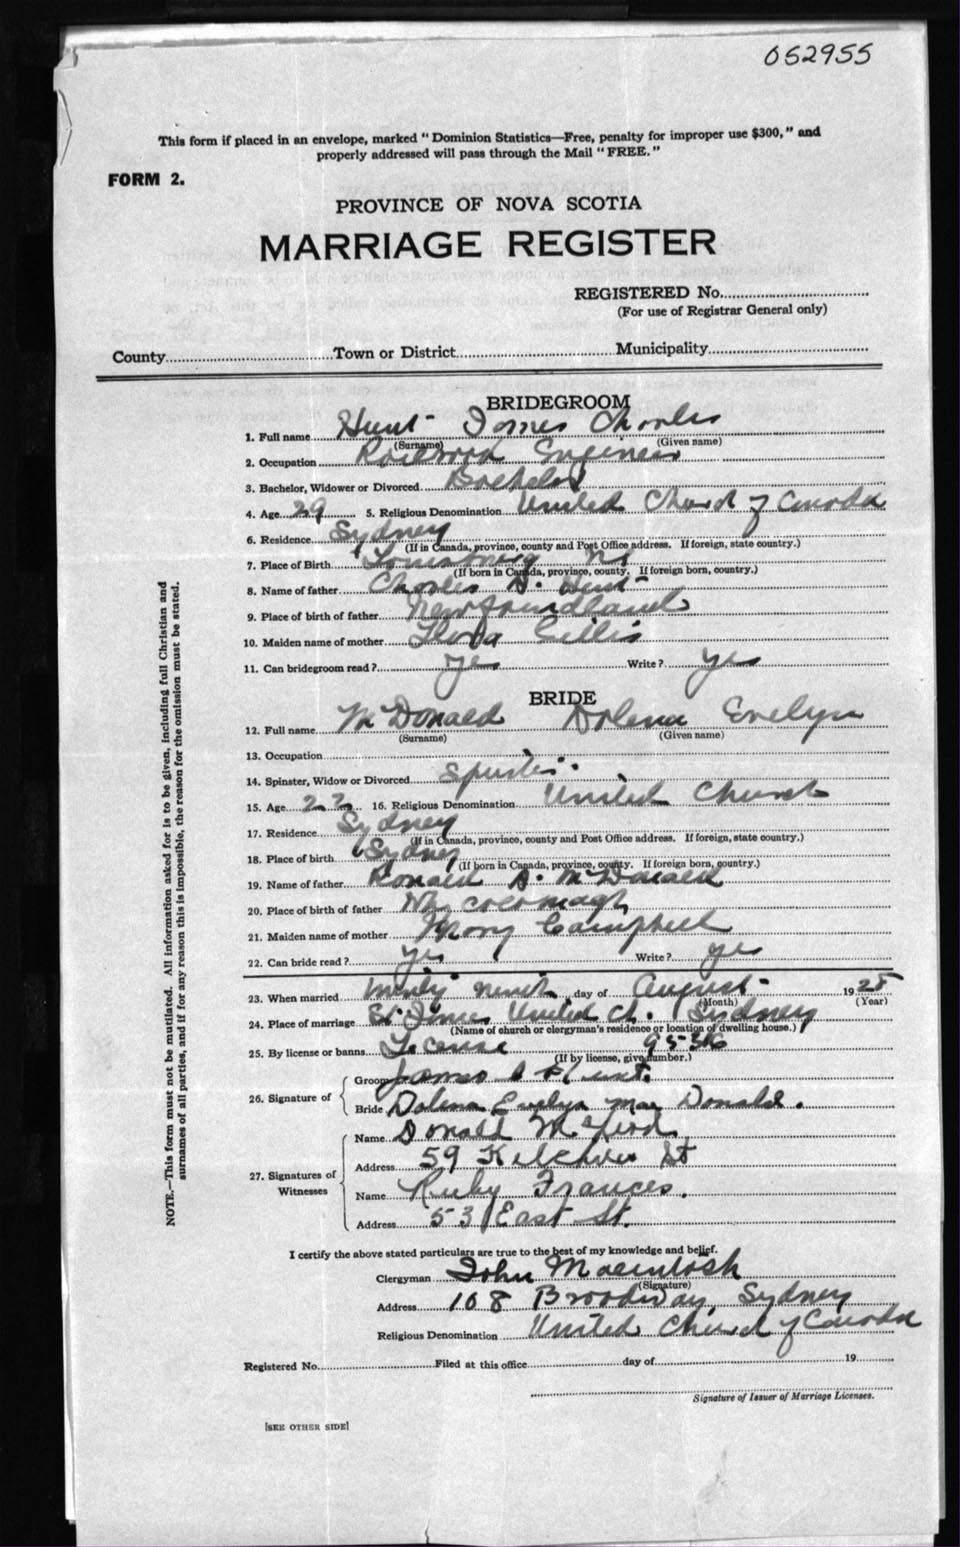 052955
This form if placed in an envelope, marked "Dominion Statistics—Free, penalty for improper use $300," and
properly addressed will pass through the Mail "FREE."
FORM 2.
PROVINCE OF NOVA SCOTIA
MARRIAGE REGISTER
REGISTERED No.
(For use of Registrar General only)
County Town or District Municipality
BRIDEGROOM
1. Full name Hunt James Charles
(Surname) (Given name)
2. Occupation Railroad Engineer
3. Bachelor, Widower or Divorced Bachelor
4. Age 29 5. Religious Denomination United Church of Canada
6. Residence Sydney
(If in Canada, province, county and Post Office address. If foreign, state country.)
7. Place of Birth Louisburg NS
(If born in Canada, province, county. If foreign born, country.)
8. Name of father Charles A. Hunt
9. Place of birth of father Newfoundland
10. Maiden name of mother Flora Gillis
11. Can bridegroom read? yes Write? yes
BRIDE
12. Full name McDonald Dolena Evelyn
(Surname) (Given name)
13. Occupation
14. Spinster, Widow or Divorced
15. Age 22 16. Religious Denomination United Church
17. Residence Sydney
(If in Canada, province, county and Post Office address. If foreign, state country.)
18. Place of birth Sydney
(If born in Canada, province, county. If foreign born, country.)
19. Name of father Ronald A. McDonald
20. Place of birth of father Whycocomagh
21. Maiden name of mother Mary Campbell
22. Can bride read? yes Write? yes
23. When married day of August 19
(Month) (Year)
24. Place of marriage St James United Ch. Sydney
(Name of church or clergyman's residence or location of dwelling house.)
25. By license or banns License
(If by license, give number.)
26. Signature of
Groom James Hunt.
Bride Dolena Evelyn Mac Donald.
27. Signatures of Witnesses
Name Donald McLeod
Address 59 St
Name Ruby Frances.
Address 53 East St.
I certify the above stated particulars are true to the best of my knowledge and belief.
Clergyman John Macintosh
(Signature)
Address 108 Broadway, Sydney
Religious Denomination United Church of Canada
Registered No. Filed at this office day of 19
Signature of Issuer of Marriage Licenses.
[SEE OTHER SIDE]
NOTE.—This form must not be mutilated. All information asked for is to be given, including full Christian and
surnames of all parties, and if for any reason this is impossible, the reason for the omission must be stated.